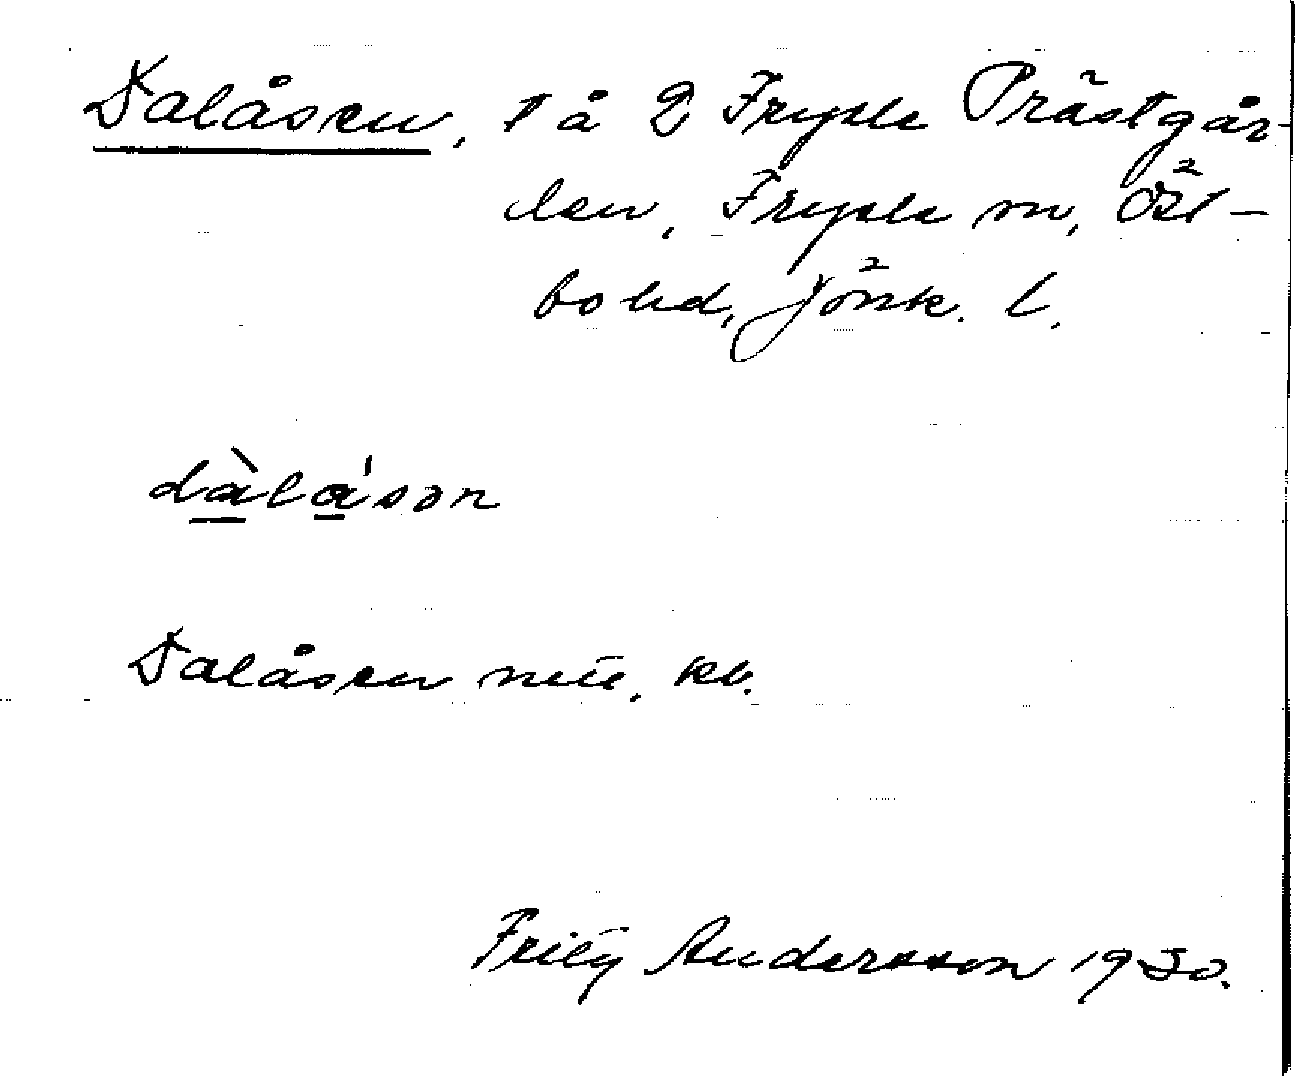 Dalåsen, t å 2 Fryele Prästgår-
den, Fryele sn, Öst-
bo hd, Jönk. l.
dàlásən
Dalåsen kb.
Fritz Andersson 1930.